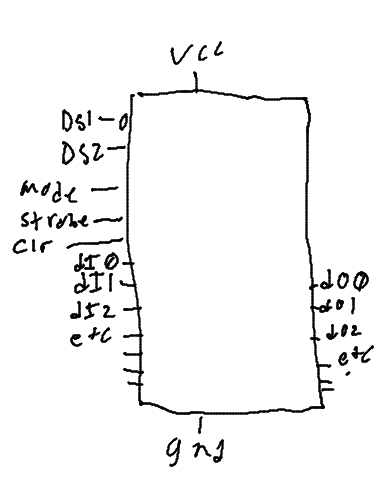 Vcc
DS1
DS2
mode
strobe
clr
dI0
dI1
dI2
etc
dO0
dO1
dO2
etc
gnd